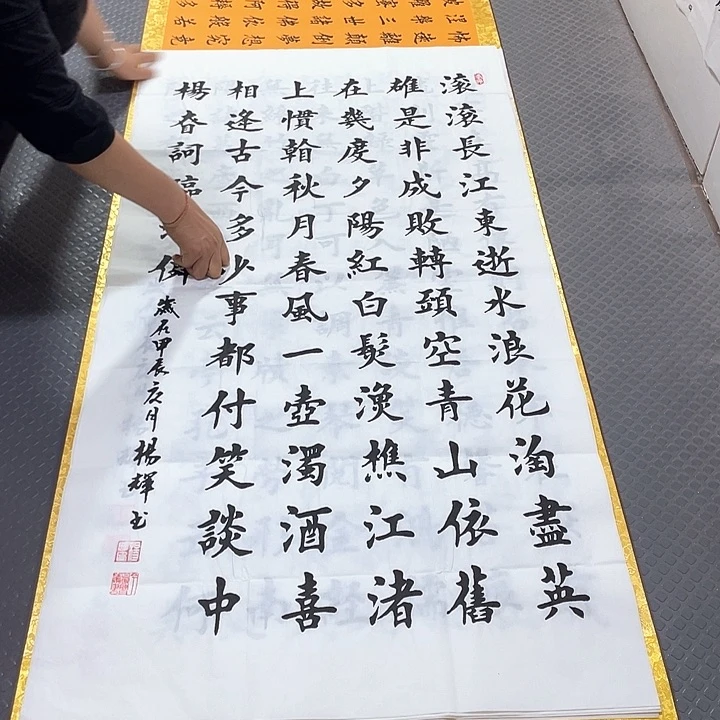 滾滾長江東逝水浪花淘盡英
雄是非成敗轉頭空青山依舊
在幾度夕陽紅白髮漁樵江渚
上慣翰秋月春風一壺濁酒喜
相逢古今多少事都付笑談中
楊昚詞臨
歲在甲辰亥月楊輝书